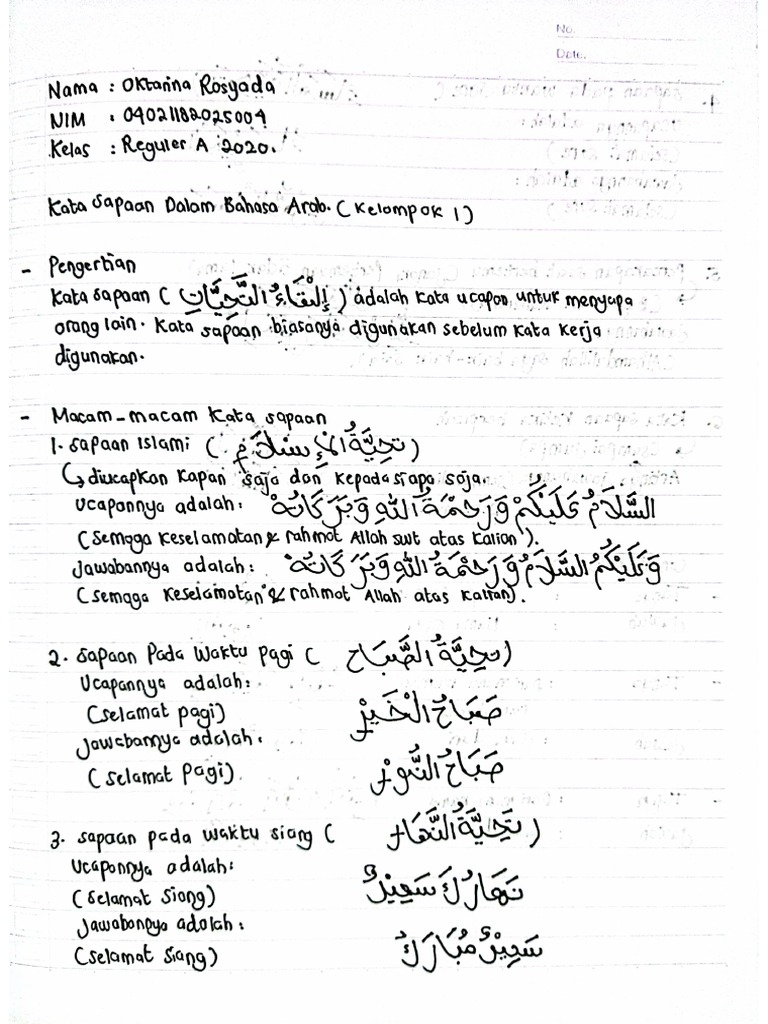 No.
Date.
Nama : Oktarina Rosyada
NIM : 04021182025004
Kelas : Reguler A 2020.
Kata Sapaan Dalam Bahasa Arab. (Kelompok 1)
- Pengertian
Kata sapaan ( إِلْقَاءُ التَّحِيَّاتِ ) adalah kata ucapan untuk menyapa
orang lain. Kata sapaan biasanya digunakan sebelum kata kerja
digunakan.
- Macam-macam Kata sapaan
1. Sapaan Islami ( تَحِيَّةُ الْإِسْلَامِ )
↳ diucapkan kapan saja dan kepada siapa saja.
Ucapannya adalah: السَّلَامُ عَلَيْكُمْ وَرَحْمَةُ اللهِ وَبَرَكَاتُهُ
(Semoga keselamatan & rahmat Allah swt atas kalian).
Jawabannya adalah: وَعَلَيْكُمُ السَّلَامُ وَرَحْمَةُ اللهِ وَبَرَكَاتُهُ
(Semoga keselamatan & rahmat Allah atas kalian).
2. Sapaan Pada Waktu Pagi ( تَحِيَّةُ الصَّبَاح )
Ucapannya adalah:
(selamat pagi) صَبَاحُ الْخَيْرِ
Jawabannya adalah:
(selamat pagi) صَبَاحُ النُّوْرِ
3. Sapaan pada waktu siang ( تَحِيَّةُ النَّهَارِ )
Ucapannya adalah:
(selamat siang) نَهَارُكَ سَعِيْدٌ
Jawabannya adalah:
(selamat siang) سَعِيْدٌ مُبَارَكُ